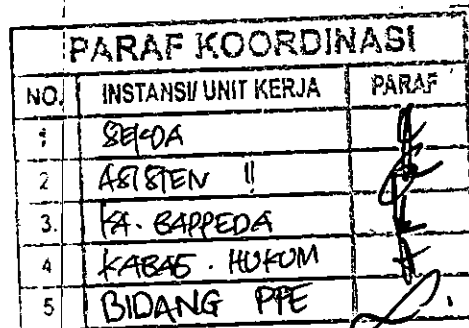 PARAF KOORDINASI
NO. INSTANSI/ UNIT KERJA PARAF
1 SEKDA
2 ASISTEN II
3. KA. BAPPEDA
4 KABAG. HUKUM
5 BIDANG PPE